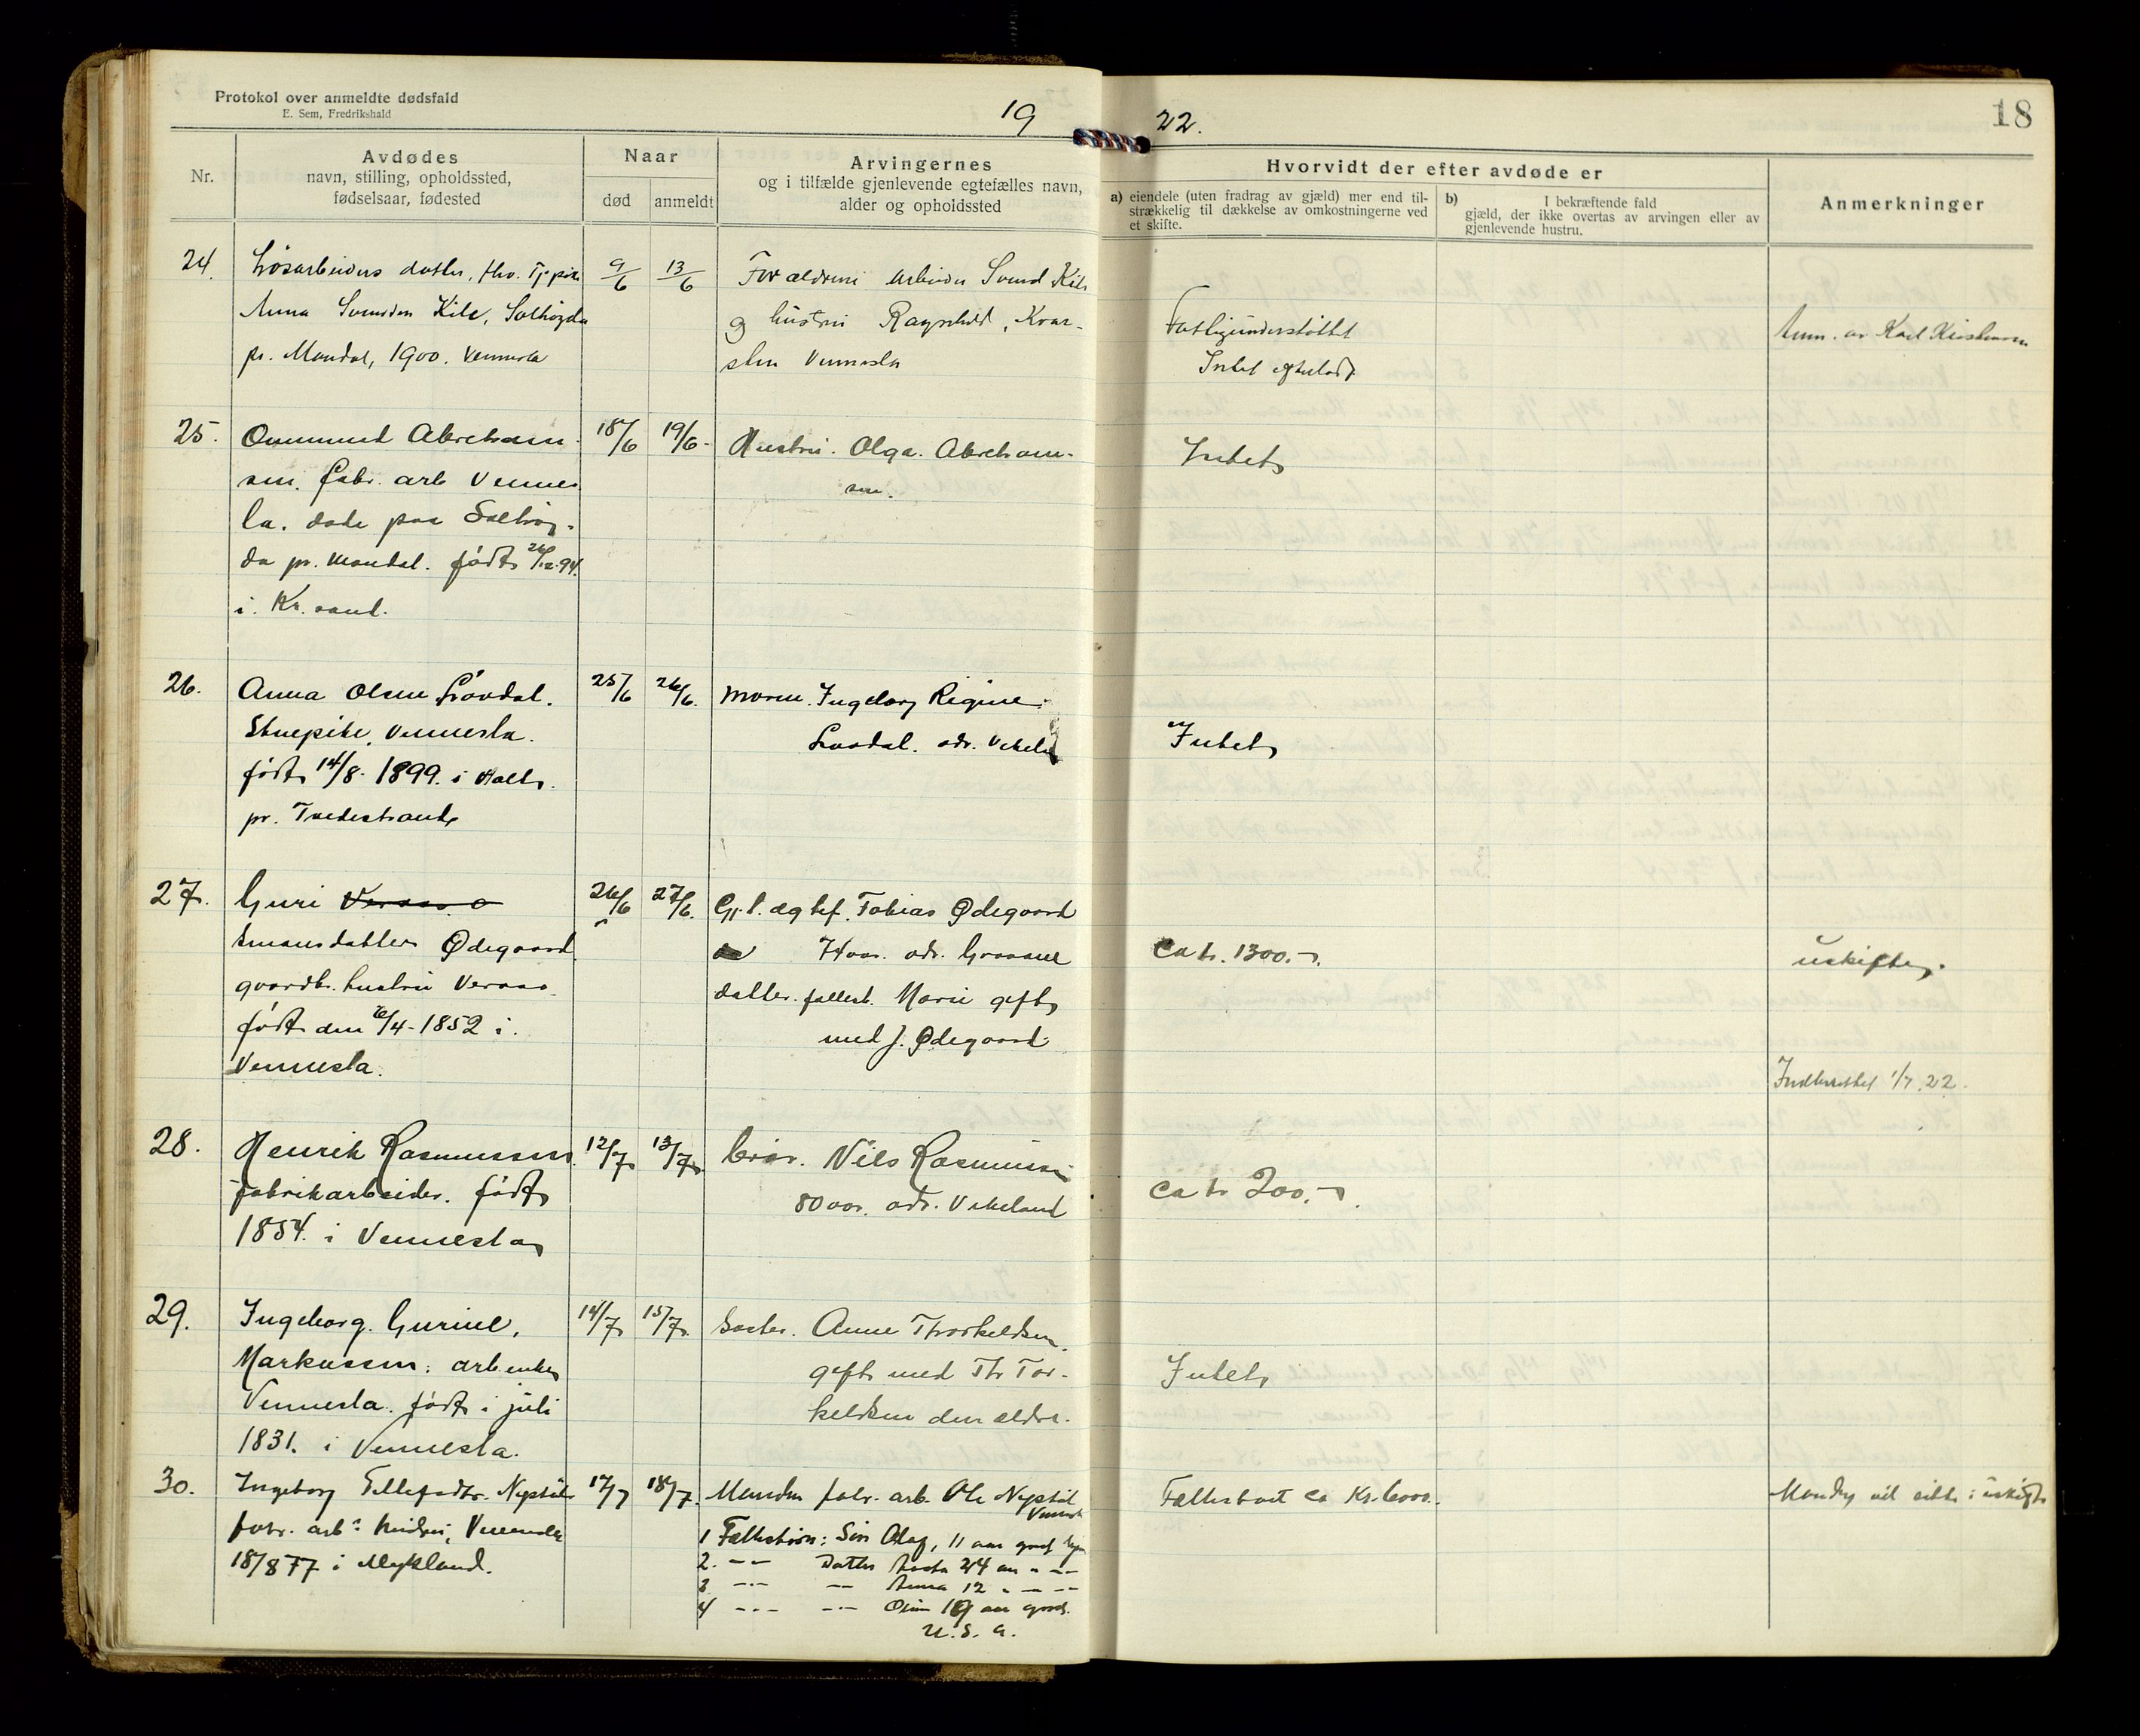 Protokol over anmeldte dødsfald
E. Sem, Fredrikshald
19 22.
18
Nr.
Avdødes
navn, stilling, opholdssted,
fødselsaar, fødested
Naar
død
anmeldt
Arvingernes
og i tilfælde gjenlevende egtefælles navn,
alder og opholdssted
Hvorvidt der efter avdøde er
a) eiendele (uten fradrag av gjæld) mer end til-
strækkelig til dækkelse av omkostningerne ved
et skifte.
b) I bekræftende fald
gjæld, der ikke overtas av arvingen eller av
gjenlevende hustru.
Anmerkninger
24.
Løsarbeiders datter, fhv.
Anna Svendsen Kile, Solhøgda
pr. Mandal, 1900. Vennesla
9/6
13/6
Forældrene arbeider Svend Kile
og hustru Ragnhild, Kvar-
sten Vennesla
Fattigunderstøttet
Intet efterladt
Anm. av Karl
25.
Ommund Abraham-
sen. fabr. arb Vennes
la. døde paa Solhøg-
da pr. Mandal. født 26/12.94.
i. Kr.sand.
18/6
19/6-
Hustru. Olga. Abraham-
sen.
Intet
26.
Anna Olsen Løvdal.
Stuepike, Vennesla.
født 14/8. 1899. i Holt.
pr. Tvedestrand
25/6
26/6.
Moren. Ingeborg Regine
Løvdal. adr. Vikeland
Intet
27.
Guri
Emansdatter Ødegaard
gaardbr. hustru Veraas.
født den 26/4-1852 i.
Vennesla.
26/6
27/6.
Gj.l. ægtef. Tobias Ødegaard
74 aar. adr. Graaane
datter. fællesb. Marie gift
med J. Ødegaard
Ca kr. 1300.-
uskifte.
Indberettet 1/7.22.
28.
Henrik Rasmussen.
fabrikarbeider. født
1854. i Vennesla
12/7
13/7.
bror. Nils Rasmussen
80 aar. adr. Vikeland
Ca kr 200.-
29.
Ingeborg. Gurine.
Markussen. arb.enke
Vennesla. født i juli
1831. i Vennesla.
14/7
15/7.
Søster. Anne Thorkeldsen.
gift med Th Tor-
keldsen den ældre.
Intet
30.
Ingeborg Tellefsdtr. Nepstøl
fabr. arb: hustru, Vennesla
18/8 77 i Mykland.
17/7
18/7.
Manden fabr. arb. Ole Nepstøl
Vennesla
1 Fællesbørn: Søn Olaf, 11 aar
2. -- Datter 24 aar " --
3 -- -- Anna 12 " -- --
4 -- -- 19 aar
U.S.A.
Fællesboet ca Kr. 6000.
Manden vil sitte i uskifte